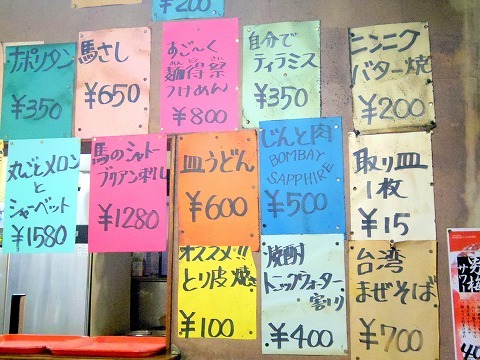 ¥200
ナポリタン
¥350
馬さし
¥650
すご〜く
めんとくさい
麺得祭
つけめん
¥800
自分で
ティラミス
¥350
ニンニク
バター焼
¥200
丸ごとメロン
と
シャーベット
¥1580
馬のシャトー
ブリアン串ル
¥1280
皿うどん
¥600
じんと肉
BOMBAY
SAPPHIRE
¥500
取り皿
1枚
¥15
オススメ!!
とり皮焼
¥100
焼酎
トニックウォーター
割り
¥400
台湾
まぜそば
¥700
男梅
サワー